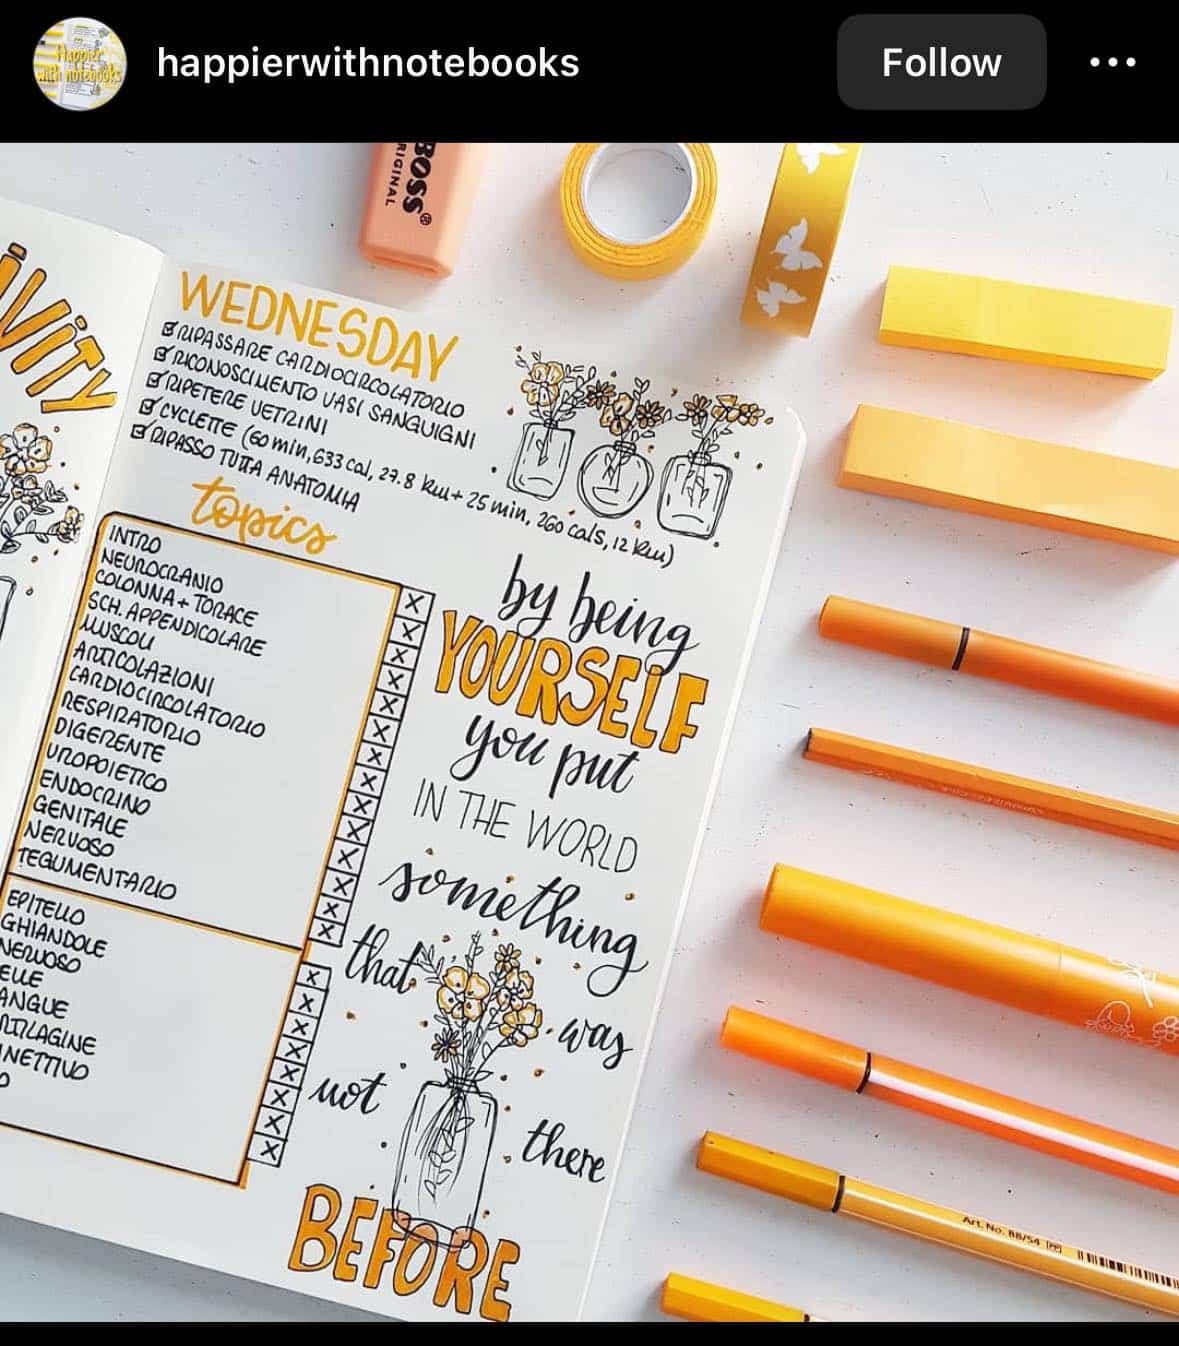 happierwithnotebooks
Follow
BOSS®
ORIGINAL
WEDNESDAY
RIPASSARE CARDIOCIRCOLATORIO
RICONOSCIMENTO VASI SANGUIGNI
RIPETERE VETRINI
CYCLETTE (60 min, 633 cal, 27.8 km + 25 min, 260 cals, 12 km)
RIPASSO TUTTA ANATOMIA
topics
INTRO
NEUROCRANIO
COLONNA + TORACE
SCH. APPENDICOLARE
MUSCOLI
ARTICOLAZIONI
CARDIOCIRCOLATORIO
RESPIRATORIO
DIGERENTE
UROPOIETICO
ENDOCRINO
GENITALE
NERVOSO
TEGUMENTARIO
EPITELIO
GHIANDOLE
NERVOSO
by being
YOURSELF
you put
IN THE WORLD
something
that
was
not
there
BEFORE
Art. No. 88/54